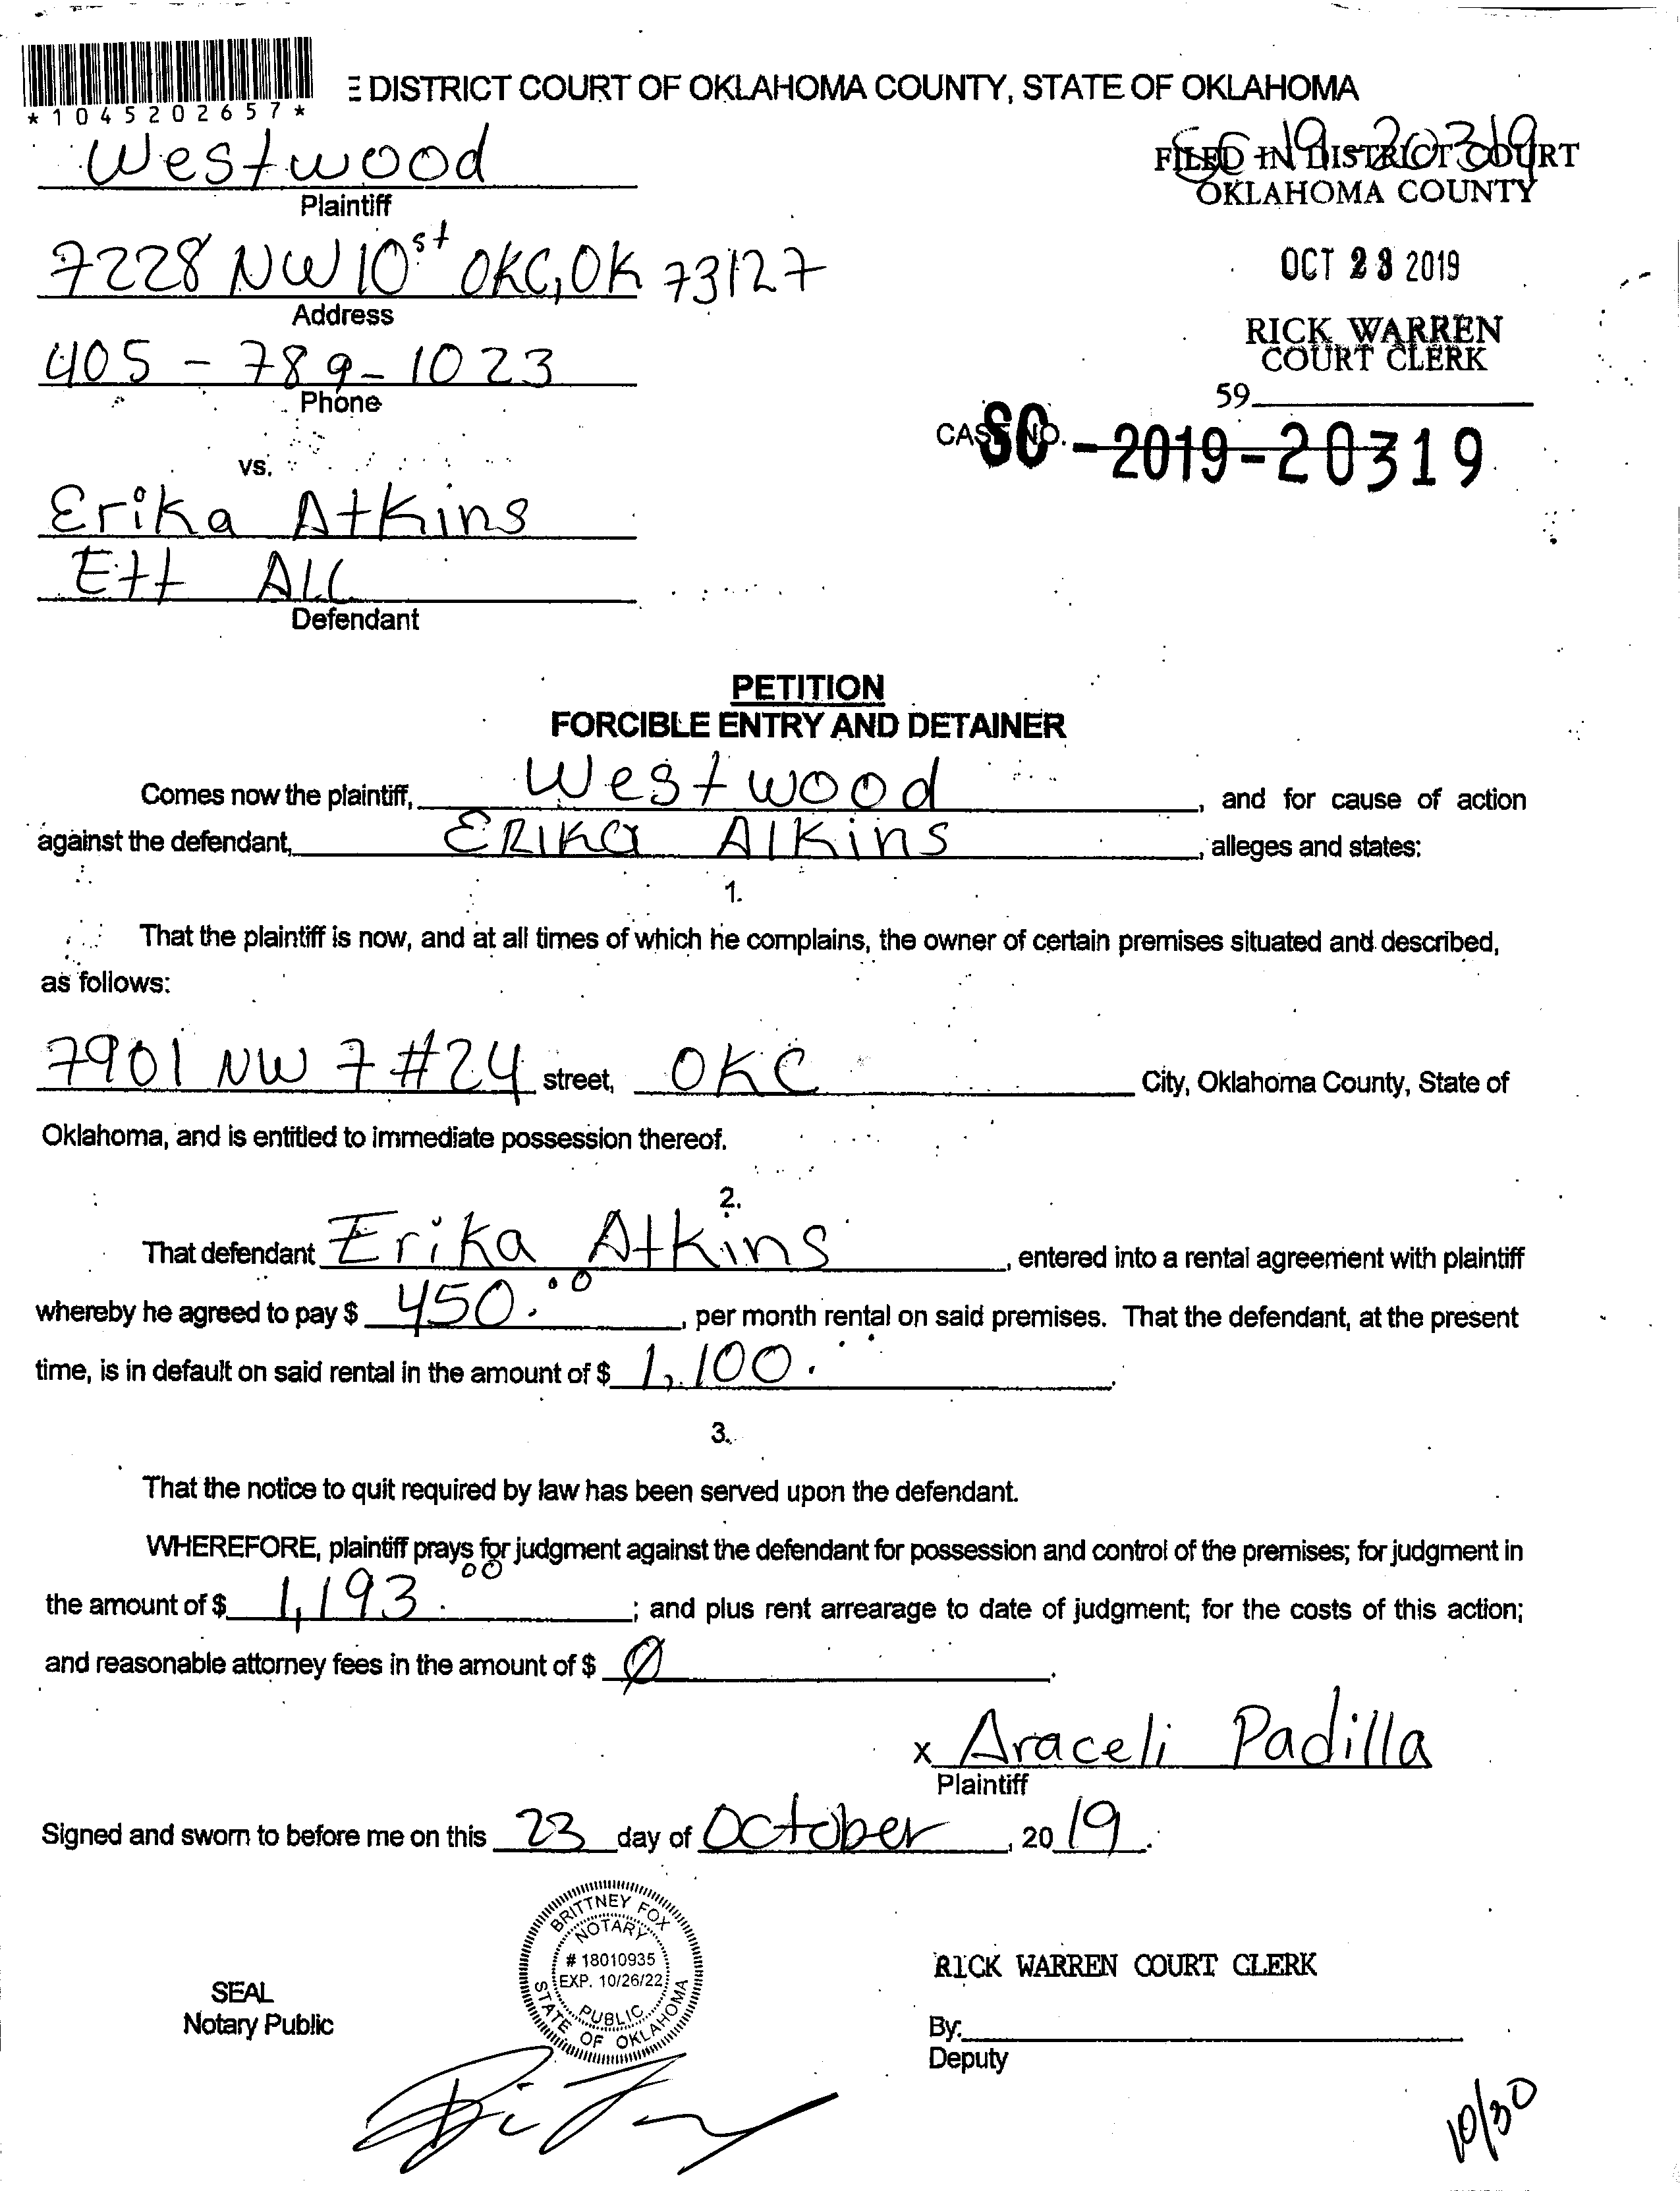 *1045202657*
E DISTRICT COURT OF OKLAHOMA COUNTY, STATE OF OKLAHOMA
SC-19-20319
Westwood
FILED IN DISTRICT COURT
OKLAHOMA COUNTY
Plaintiff
7228 NW 10st OKC, OK 73127
OCT 23 2019
Address
RICK WARREN
COURT CLERK
405-789-1023
Phone
59
CASE NO. SC-2019-20319
vs.
Erika Atkins
Ett All
Defendant
PETITION
FORCIBLE ENTRY AND DETAINER
Comes now the plaintiff, Westwood, and for cause of action
against the defendant, ERIKA Alkins, alleges and states:
1.
That the plaintiff is now, and at all times of which he complains, the owner of certain premises situated and described,
as follows:
7901 NW 7 #24 street, OKC City, Oklahoma County, State of
Oklahoma, and is entitled to immediate possession thereof.
2.
That defendant Erika Atkins, entered into a rental agreement with plaintiff
whereby he agreed to pay $ 450.00, per month rental on said premises. That the defendant, at the present
time, is in default on said rental in the amount of $ 1,100...
3.
That the notice to quit required by law has been served upon the defendant.
WHEREFORE, plaintiff prays for judgment against the defendant for possession and control of the premises; for judgment in
the amount of $ 1,193.00; and plus rent arrearage to date of judgment; for the costs of this action;
and reasonable attorney fees in the amount of $ Ø.
x Araceli Padilla
Plaintiff
Signed and sworn to before me on this 23 day of October, 2019.
BRITTNEY FOX
NOTARY
# 18010935
EXP. 10/26/22
PUBLIC
STATE OF OKLAHOMA
RICK WARREN COURT CLERK
SEAL
Notary Public
By:
Deputy
10/30